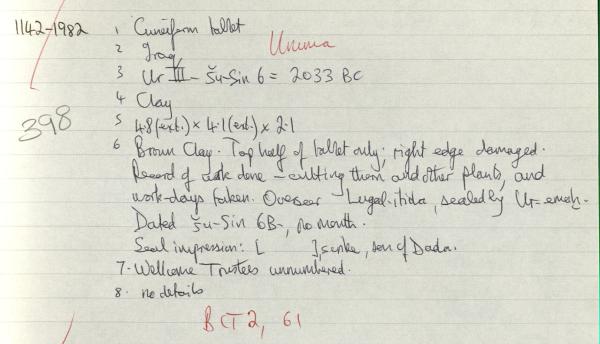 1142-1982 1 Cuneiform tablet
2 Iraq Umma
3 Ur III - Šu-Sin 6 = 2033 BC
4 Clay
398
5 4.8 (ext.) × 4.1 (ext.) × 2.1
6 Brown Clay. Top half of tablet only; right edge damaged.
Record of work done - cutting thorn and other plants, and
work-days taken. Overseer - Lugal-itida, sealed by Ur-emaḫ.
Dated Šu-Sin 6B-, no month.
Seal impression: [ ], scribe, son of Dada.
7. Wellcome Trustees unnumbered.
8. no details
BCT 2, 61